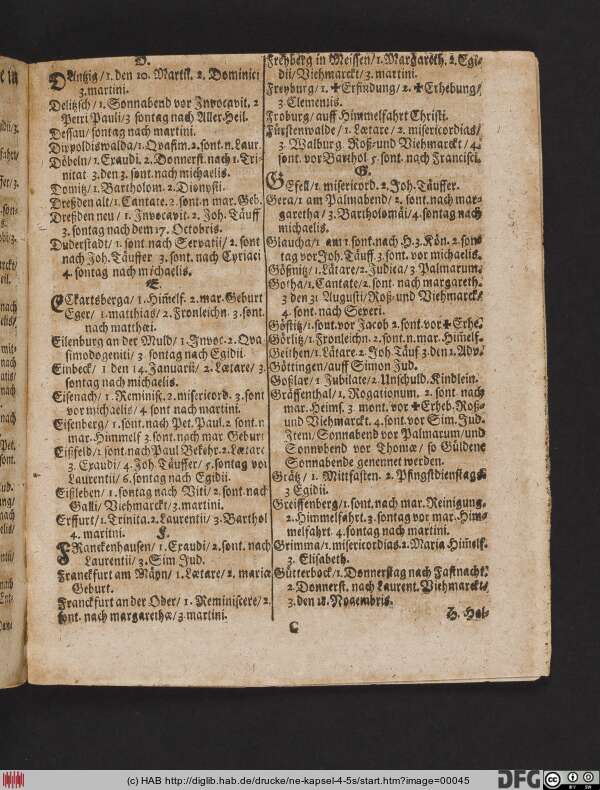 D.
DAntzig/1. den 10. Martii. 2. Dominici
3. martini.
Delitzsch/1. Sonnabend vor Invocavit. 2
Petri Pauli/3 sontag nach Aller Heil.
Dessau/sontag nach martini.
Dippoldiswalda/1. Quasim. 2. sont. n. Laur.
Döbeln/1. Exaudi. 2. Donnerst. nach 1. Tri-
nitat 3. den 3. sont. nach michaelis.
Domitz/1. Bartholom. 2. Dionysii.
Dreßden alt/1. Cantate. 2. sont. n mar. Geb.
Dreßden neu/1. Invocavit. 2. Joh. Täuff
3. sontag nach dem 17. Octobris.
Duderstadt/1. sont. nach Servatii/2. sont
nach Joh. Täuffer 3. sont. nach Cyriaci
4. sontag nach michaelis.
E.
ECkartsberga/1. Himelf. 2. mar. Geburt
Eger/1. matthias/2. Fronleichn. 3. sont.
nach matthæi.
Eilenburg an der Muld/1. Invoc. 2. Qua
simodogeniti/3 sontag nach Egidii.
Einbeck/1 den 14. Januarii/2. Lætare/3.
sontag nach michaelis.
Eisenach/1. Reminisc. 2. misericord. 3. sont
vor michaelis/4 sont nach martini.
Eisenberg/1. sont. nach Pet. Paul. 2. sont. n
mar. Himmelf 3. sont. nach mar Geburt
Eißfeld/1. sont. nach Paul Bekehr. 2. Lætare
3. Exaudi/4. Joh Täuffer/5. sontag vor
Laurentii/6. sontag nach Egidii.
Eißleben/1. sontag nach Viti/2. sont. nach
Galli/Viehmarckt/3. martini.
Erffurt/1. Trinita. 2. Laurentii/3. Barthol
4. maritini.
F.
FRanckenhausen/1. Exaudi/2. sont. nach
Laurentii/3. Sim Jud.
Franckfurt am Mäyn/1. Lætare/2. mariæ
Geburt.
Franckfurt an der Oder/1. Reminiscere/2.
sont. nach margarethæ/3. martini.
Freyberg in Meissen/1. Margareth. 2. Egi-
dii/Viehmarckt/3. martini.
Freyburg/1. ✝Erfindung/2. ✝Erhebung/
3 Clementis.
Froburg/auff Himmelfahrt Christi.
Fürstenwalde/1. Lætare/2. misericordias/
3. Walburg. Roß- und Viehmarckt/4.
sont. vor Barthol 5. sont. nach Francisci.
G.
GEfell/1. misericord. 2. Joh. Täuffer.
Gera/1 am Palmabend/2. sont. nach mar-
garetha/3. Bartholomäi/4. sontag nach
michaelis.
Glaucha/1 am 1 sont. nach H. 3. Kön. 2. son-
tag vor Joh. Täuff 3. sont. vor michaelis.
Gößnitz/1. Lätare/2. Judica/3 Palmarum.
Gotha/1. Cantate/2. sont. nach margareth.
3 den 31 Augusti/Roß- und Viehmarckt/
4. sont. nach Severi.
Göstitz/1. sont. vor Jacob 2. sont. vor ✝Erhe.
Görlitz/1. Fronleichn. 2. sont. n. mar. Himelf.
Geithen/1. Lätare. 2. Joh Täuf 3. den 1. Adv.
Göttingen/auff Simon Jud.
Goßlar/1 Jubilate/2. Unschuld. Kindlein.
Gräffenthal/1. Rogationum. 2. sont nach
mar. Heims. 3. mont. vor ✝Erheb. Roß-
und Viehmarckt. 4. sont. vor Sim. Jud.
Item/Sonnabend vor Palmarum/und
Sonnabend vor Thomæ/so Güldene
Sonnabende genennet werden.
Grätz/1. Mittfasten. 2. Pfingstdienstag.
3 Egidii.
Greiffenberg/1. sont. nach mar. Reinigung.
2. Himmelfahrt. 3. sontag vor mar. Him-
melfahrt 4. sontag nach martini.
Grimma/1. misericordias. 2. Maria Himelf.
3. Elisabeth.
Gütterbock/1. Donnerstag nach Fastnacht.
2. Donnerst. nach Laurent. Viehmarckt/
3. den 18. Novembris.
C
H. Hal-
(c) HAB http://diglib.hab.de/drucke/ne-kapsel-4-5s/start.htm?image=00045
DFG
cc
BY SA